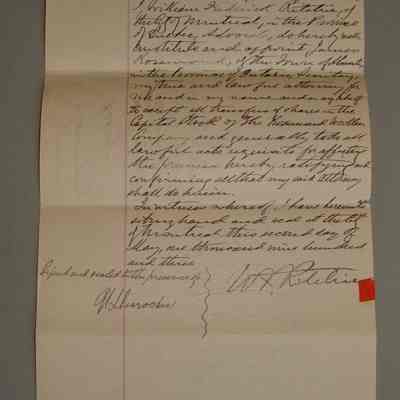 I William Frederick Ritchie, of
the City of Montreal, in the Province
of Quebec, Advocate, do hereby
constitute and appoint James
Rosamond, of the Town of
in the Province of Ontario,
my true and lawful attorney for
me and in my name and on my behalf
to accept all transfers of shares in the
Capital Stock of The Rosamond Woollen
Company and generally to do all
lawful acts requisite for effecting
the premises hereby ratifying and
confirming all that my said attorney
shall do herein.
In witness whereof I have hereunto
set my hand and seal at the City
of Montreal this second day of
May one thousand nine hundred
and three
Signed and sealed in the presence of
W.F. Ritchie